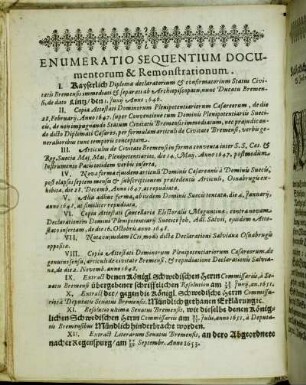 ENUMERATIO SEQUENTIUM DOCU-
mentorum & Remonstrationum.
I. Kayserlich Diploma declaratorium & confirmatorium Status Civi-
tatis Bremensis immediati & separati ab Archiepiscopatu, nunc Ducatu Bremen-
si, de dato Lintz/ den 1. Junij Anno 1646.
II. Copia Attestati Dominorum Plenipotentiariorum Caesareorum, de dio
28. Februarij, Anno 1647. super Conventione cum Dominis Plenipotentiariis Sueci-
cis, de non impugnando Statum Civitatis Bremensis immediatum, nec præjudican-
do dicto Diplomati Caesareo, per formulam articuli de Civitate Bremensi, verbis ge-
neralioribus tunc temporis conceptam.
III. Articulus de Civitate Bremensi in forma conventa inter S. S. Cæs. &
Reg. Sueciæ Maj. Maj. Plenipotentiarios, die 14. Maij, Anno 1647. post modum
Instrumento Pacis eadem verbis insertus.
IV. Nova formula ejusdem articuli Dominis Caesareanis à Dominis Suecis,
post elapsos septem menses & subsecutam
die 18. Decemb. Anno 1647. acceptata.
V. Alia adhuc forma, ab iisdem Dominis Suecis tentata, die 4. Januarij,
Anno 1648. ast itidem repudiata.
VI. Copia Attestati Cancellariæ Electoralis Moguntinæ, contra novam
Declarationem Domini Plenipotentiarij Suecici, Joh. Adl. Salvii, ejusdem Atte-
stato insertam, de dato 16. Octobris anno 1648.
VII. Nota ejusdem dictæ Declarationi Salvianæ Osnabrugis
opposita.
VIII. Copia Attestati Dominorum Plenipotentiariorum Caesareorum, de
genuino sensu, articuli de civitate Bremensi, & repudiatione Declarationis Salvia-
næ, de dato 2. Novemb. Anno 1648.
IX. Extract deren Königl. Schwedischen Herrn Commissariis, à Se-
natu Bremensi übergebener schrifftlichen Resolution am Junij, an. 1651.
X. Extract der/ gegen die Königl. Schwedische Herrn Commissa-
rios à Deputatis Senatus Bremensis, Mündlich gethanen Erklärungen.
XI. Resolutio ultima Senatus Bremensis, wie dieselbe denen König-
lichen Schwedischen Herrn Commissariis am Julij, anno 1651. à Deputa-
tis Bremensibus Mündlich hinderbracht worden.
XII. Extract Literarum Senatus Bremensis, an dero Abgeordnete
nacher Regenspurg/ am Septembr. Anno 1653.